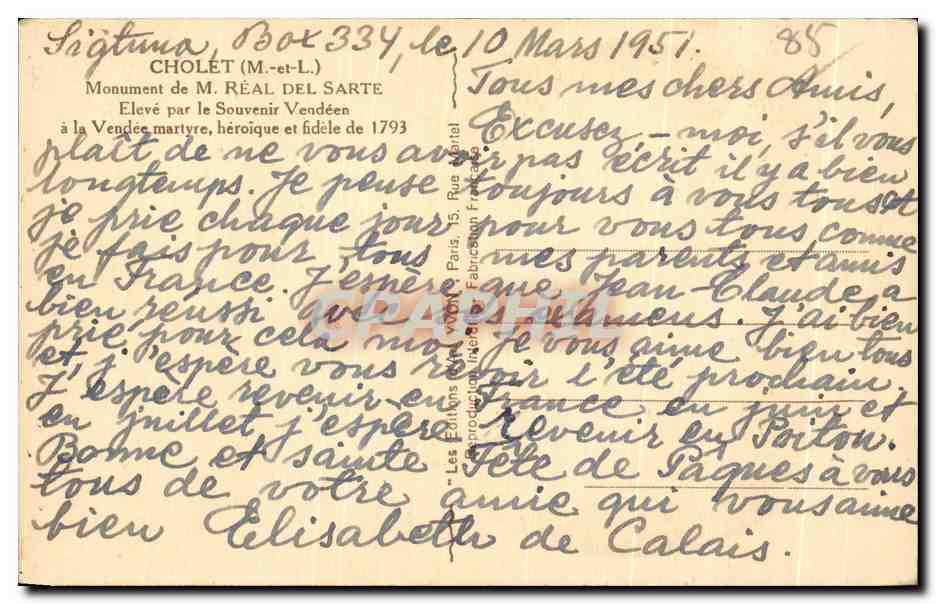 Sigtuna, Box 334, le 10 Mars 1951.
85
CHOLET (M.-et-L.)
Monument de M. RÉAL DEL SARTE
Elevé par le Souvenir Vendéen
à la Vendée martyre, héroïque et fidèle de 1793
Tous mes chers Amis,
Excusez-moi, s'il vous
plaît de ne vous avoir pas écrit il y a bien
longtemps. Je pense toujours à vous tous et
je prie chaque jour pour vous tous, comme
je fais pour tous mes parents et amis
en France. J'espère que Jean-Claude a
bien réussi avec ses examens. J'ai bien
prié pour cela moi. Je vous aime bien tous
et j'espère vous revoir l'été prochain.
J'espère revenir en France en juin et
en juillet j'espère revenir en Poitou.
Bonne et sainte Fête de Pâques à vous
tous de votre amie qui vous aime
bien Elisabeth de Calais.
"Les Editions d'Art YVON", Paris, 15, Rue Martel
Reproduction Interdite Fabrication Française
CPAPHIL